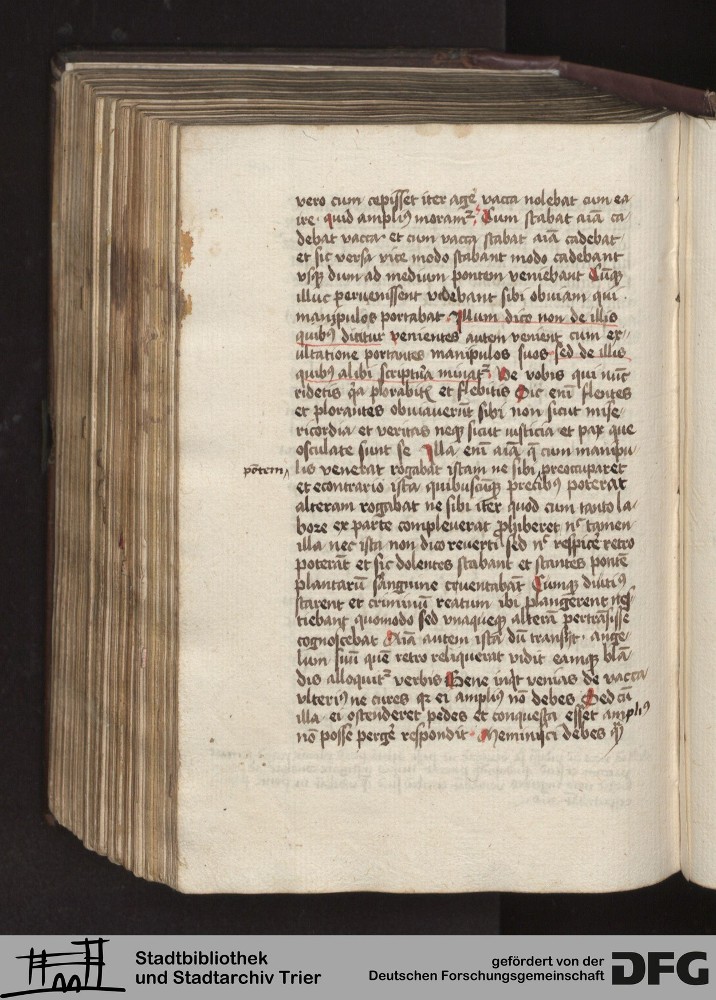 vero cum cepisset iter agẽ vacca nolebat cum ea
ire · quid ampliꝰ moramꝛ Cum stabat aīā ca
debat vacca · et cum vacca stabat aīā cadebat
et sic versa vice modo stabant modo cadebant
vsqꝫ dum ad medium pontem veniebant Cūqꝫ
illuc pervenissent videbant sibi obuiam qui ·
manipulos portabat Illum dico non de illis
quibꝰ dicitur venientes autem venient cum ex/
ultatione portantes manipulos suos sed de illis
quibꝰ alibi scriptura minatꝛ Ve vobis qui nūc
ridetis qͣ plorabitꝭ et flebitis Sic enī flentes
et plorantes obuiauerūt sibi non sicut mise/
ricordia et veritas neqꝫ sicut iusticia et pax que
osculate sunt se Illa enī aīā q̄ cum manipu/
põtem lis venerat rogabat istam ne sibi preoccuparet
et econtrario ista quibuscūqꝫ precibꝰ poterat
alteram rogabat ne sibi iter quod cum tanto la/
bore ex parte compleuerat ꝓhiberet nꝭ tamen
illa nec ista non dico reuerti sed nꝭ respicẽ retro
poterāt et sic dolentes stabant et stantes pontē
plantarū sanguine cruentabāt Cumqꝫ diutiꝰ
starent et criminū reatum ibi plangerent nes
ciebant quomodo sed vnaqueqꝫ alterā pertrāsisse
cognoscebat Aīā autem ista dū transīret · ange/
lum suū quē retro reliquerat vidit eamqꝫ blā/
dis alloquitꝛ verbis Bene inqͥt venias de vacca
vlteriꝰ ne cures qꝛ ei ampliꝰ nō debes Sed cū
illa ei ostenderet pedes et conquesta esset ampliꝰ
nō posse pergẽ respondit · Meminisci debes qͣ
Stadtbibliothek
und Stadtarchiv Trier
gefördert von der
Deutschen Forschungsgemeinschaft
DFG